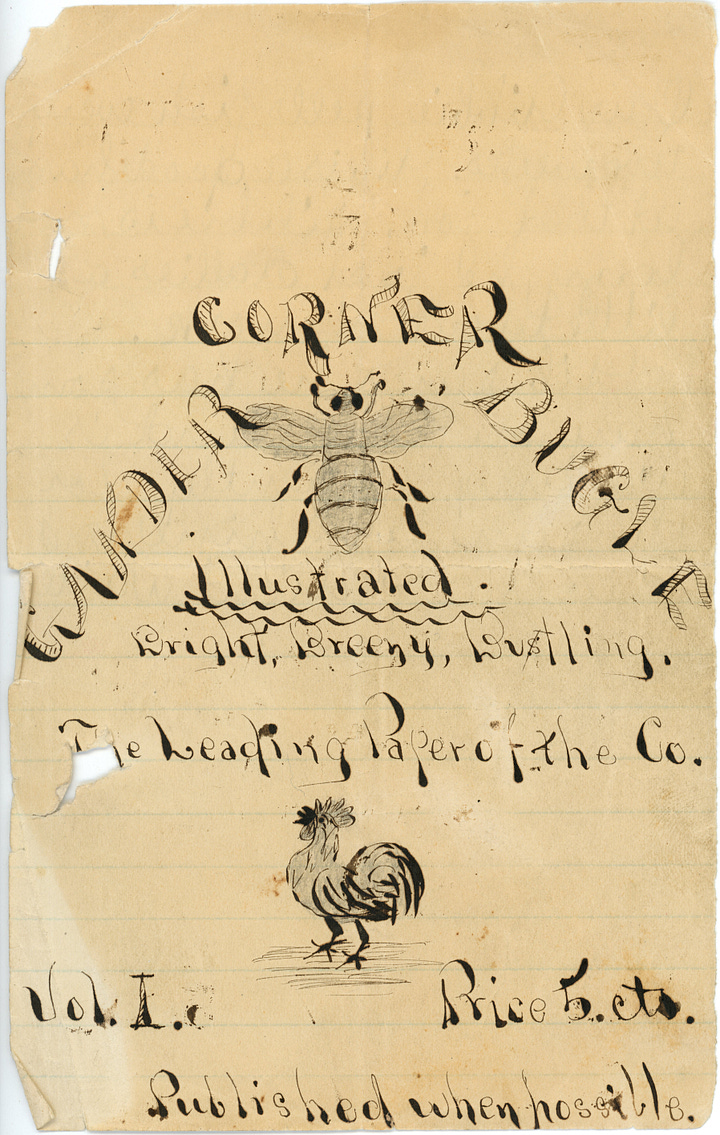 GANDER CORNER BUGLE
Illustrated.
Bright, Breezy, Bustling.
The Leading Paper of the Co.
Vol. I.
Price 5. cts.
Published when possible.